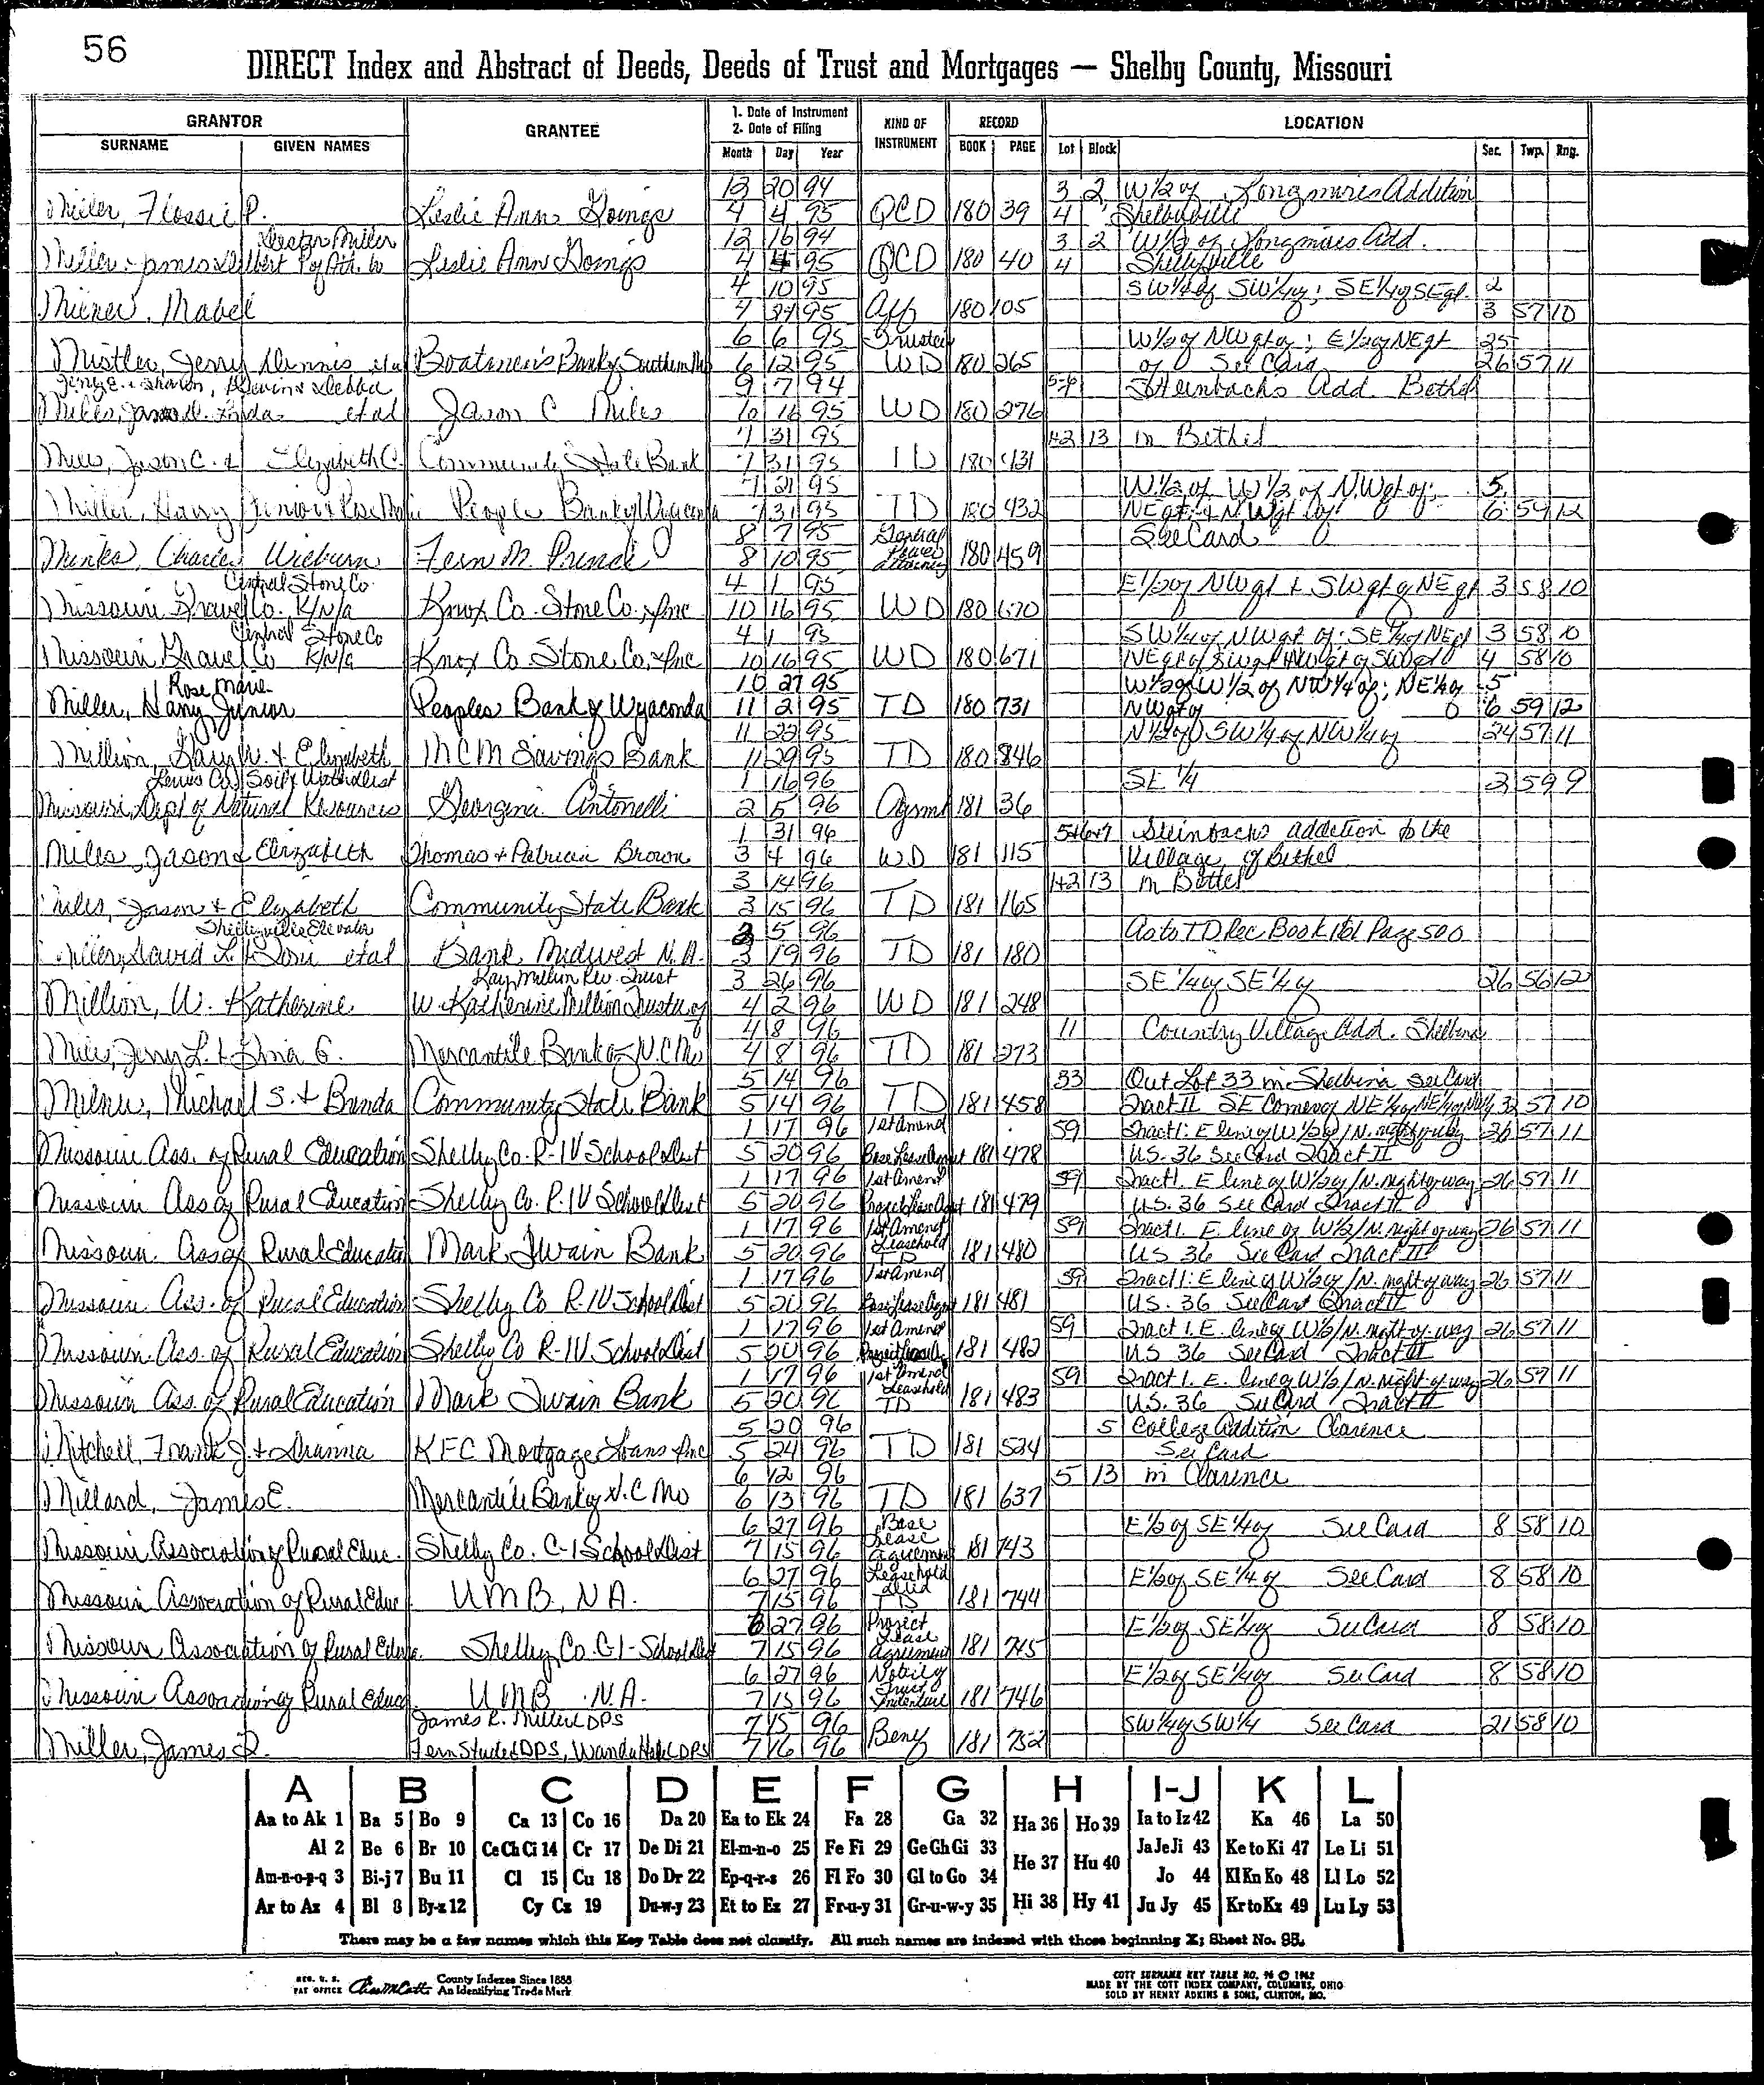 56
DIRECT Index and Abstract of Deeds, Deeds of Trust and Mortgages — Shelby County, Missouri
GRANTOR GRANTEE 1. Date of Instrument 2. Date of Filing KIND OF INSTRUMENT RECORD LOCATION
SURNAME GIVEN NAMES Month Day Year BOOK PAGE Lot Block Sec. Twp. Rng.
12 20 94 3 2 W 1/2 of Longmires Addition
Miller, Flossie P. Leslie Ann Goings 4 4 95 QCD 180 39 4 Shelbyville
Lester Miller 12 16 94 3 2 W 1/2 of Longmires Add.
Miller, James Delbert Leslie Ann Goings 4 4 95 QCD 180 40 4 Shelbyville
4 10 95 SW 1/4 of SW 1/4; SE 1/4 of SE 2
Mabel 4 95 Aff 180 105 3 57 10
6 6 95 Trustee W 1/2 of NW qt of; E 1/2 of NE qt 25
Mistler, Jerry Dennis etal Boatmen's Bank of Southern Mo 6 12 95 WD 180 265 of See Card 26 57 11
9 7 94 Steinbachs Add. Bethel
Miles, Linda etal Jason C Miles 10 16 95 WD 180 276
7 31 95 1+2 13 in Bethel
Miles, Jason C. + Elizabeth C. Community State Bank 7 31 95 TD 180 431
7 21 95 W 1/2 of W 1/2 of NW qt of; 5
Miller, Harry Junior Rose Marie Peoples Bank of Wyaconda 7 31 95 TD 180 432 6 59 12
8 7 95 General Power See Card
Minks, Charles Wilburn Fern M. 8 10 95 Attorney 180 459
Central Stone Co. 4 1 95 E 1/2 of NW qt + SW qt of NE qt 3 58 10
Missouri Gravel Co. K/N/a Knox Co. Stone Co., Inc 10 16 95 WD 180 670
Central Stone Co 4 1 95 SW 1/4 of NW qt of; SE 1/4 of NE qt 3 58 10
Missouri Gravel Co K/N/a Knox Co Stone Co, Inc 10 16 95 WD 180 671 4 58 10
Rose Marie 10 27 95 W 1/2 of W 1/2 of NW 1/4 of; NE 1/4 of 5
Miller, Harry Junior Peoples Bank of Wyaconda 11 2 95 TD 180 731 NW qt of 6 59 12
11 22 95 N 1/2 of SW 1/4 of NW 1/4 of 24 57 11
Million, W. + Elizabeth MCM Savings Bank 11 29 95 TD 180 846
Lewis Co. Soil + Water Dist 1 16 96 SE 1/4 2 59 9
Missouri, Dept of Natural Resources Georgina Antonelli 2 5 96 Agsmt 181 36
1 31 96 5+6+7 Steinbachs addition to the
Miles, Jason + Elizabeth Thomas + Patricia Brown 3 4 96 WD 181 115 Village of Bethel
3 14 96 1+2 13 in Bethel
Miles, Jason + Elizabeth Community State Bank 3 15 96 TD 181 165
Shelbyville Elevator 3 5 96 As to TD Rec Book 161 Page 500
Miller, David L. + Dori etal Bank Midwest N.A. 3 19 96 TD 181 180
Kay Million Rev. Trust 3 26 96 SE 1/4 of SE 1/4 of 26 56 12
Million, W. Katherine W Katherine Million Trustee of 4 2 96 WD 181 248
4 8 96 11 Country Village Add. Shelbina
Miles, Jerry L. + G. Mercantile Bank of N.C Mo 4 8 96 TD 181 273
5 14 96 33 Out Lot 33 in Shelbina See Card
Michael S. + Brenda Community State Bank 5 14 96 TD 181 458 Tract II SE Corner of NE 1/4 of NE 1/4 of NW 1/4 32 57 10
1 17 96 1st Amend 59 Tract 1: E line of W 1/2 of / N. right of way 26 57 11
Missouri Ass. of Rural Education Shelby Co. R-IV School Dist 5 20 96 Base Lease Agmt 181 478 U.S. 36 See Card Tract II
1 17 96 1st Amend 59 Tract 1. E line of W 1/2 of / N. right of way 26 57 11
Missouri Ass of Rural Education Shelby Co. R-IV School Dist 5 20 96 Project Lease Agmt 181 479 U.S. 36 See Card Tract II
1 17 96 1st Amend 59 Tract 1. E line of W 1/2 / N. right of way 26 57 11
Missouri Ass of Rural Education Mark Twain Bank 5 20 96 Leasehold TD 181 480 US 36 See Card Tract II
1 17 96 1st Amend 59 Tract 1: E line of W 1/2 of / N. right of way 26 57 11
Missouri Ass. of Rural Education Shelby Co R-IV School Dist 5 20 96 Base Lease Agmt 181 481 U.S. 36 See Card Tract II
1 17 96 1st Amend 59 Tract 1. E. line of W 1/2 / N. right of way 26 57 11
Missouri Ass. of Rural Education Shelby Co R-IV School Dist 5 20 96 Project Lease Ag 181 482 US 36 See Card Tract II
1 17 96 1st Amend 59 Tract 1. E. line of W 1/2 / N. right of way 26 57 11
Missouri Ass. of Rural Education Mark Twain Bank 5 20 96 Leasehold TD 181 483 U.S. 36 See Card Tract II
5 20 96 5 College Addition Clarence
Mitchell, Frank J. + Deanna KFC Mortgage Loans Inc 5 24 96 TD 181 524 See Card
6 12 96 5 13 in Clarence
Millard, James E. Mercantile Bank of N.C Mo 6 13 96 TD 181 637
6 27 96 Base Lease E 1/2 of SE 1/4 of See Card 8 58 10
Missouri Association of Rural Educ. Shelby Co. C-1 School Dist 7 15 96 Agreement 181 743
6 27 96 Leasehold Deed E 1/2 of SE 1/4 of See Card 8 58 10
Missouri Association of Rural Educ UMB, NA. 7 15 96 TD 181 744
6 27 96 Project Lease E 1/2 of SE 1/4 of See Card 8 58 10
Missouri Association of Rural Educ. Shelby Co. C-1-School Dist 7 15 96 Agreement 181 745
6 27 96 Trust E 1/2 of SE 1/4 of See Card 8 58 10
Missouri Association of Rural Educ UMB N.A. 7 15 96 Indenture 181 746
James R. Miller DPS 7 15 96 SW 1/4 of SW 1/4 See Card 21 58 10
Miller, James R. Fern DPS, Wanda DPS 7 16 96 Beny 181 752
A B C D E F G H I-J K L
Aa to Ak 1 Ba 5 Bo 9 Ca 13 Co 16 Da 20 Ea to Ek 24 Fa 28 Ga 32 Ha 36 Ho 39 Ia to Iz 42 Ka 46 La 50
Al 2 Be 6 Br 10 Ce Ch Ci 14 Cr 17 De Di 21 El-m-n-o 25 Fe Fi 29 Ge Gh Gi 33 He 37 Hu 40 Ja Je Ji 43 Ke to Ki 47 Le Li 51
Am-n-o-p-q 3 Bi-j 7 Bu 11 Cl 15 Cu 18 Do Dr 22 Ep-q-r-s 26 Fl Fo 30 Gl to Go 34 Jo 44 Kl Kn Ko 48 Ll Lo 52
Ar to Az 4 Bl 8 By-z 12 Cy Cz 19 Du-w-y 23 Et to Ez 27 Fr-u-y 31 Gr-u-w-y 35 Hi 38 Hy 41 Ju Jy 45 Kr to Kz 49 Lu Ly 53
There may be a few names which this Key Table does not classify. All such names are indexed with those beginning X; Sheet No. 95.
REG. U. S. PAT OFFICE County Indexes Since 1888 An Identifying Trade Mark
COTT SURNAME KEY TABLE NO. 96 © 1962
MADE BY THE COTT INDEX COMPANY, COLUMBUS, OHIO
SOLD BY HENRY ADKINS & SONS, CLINTON, MO.